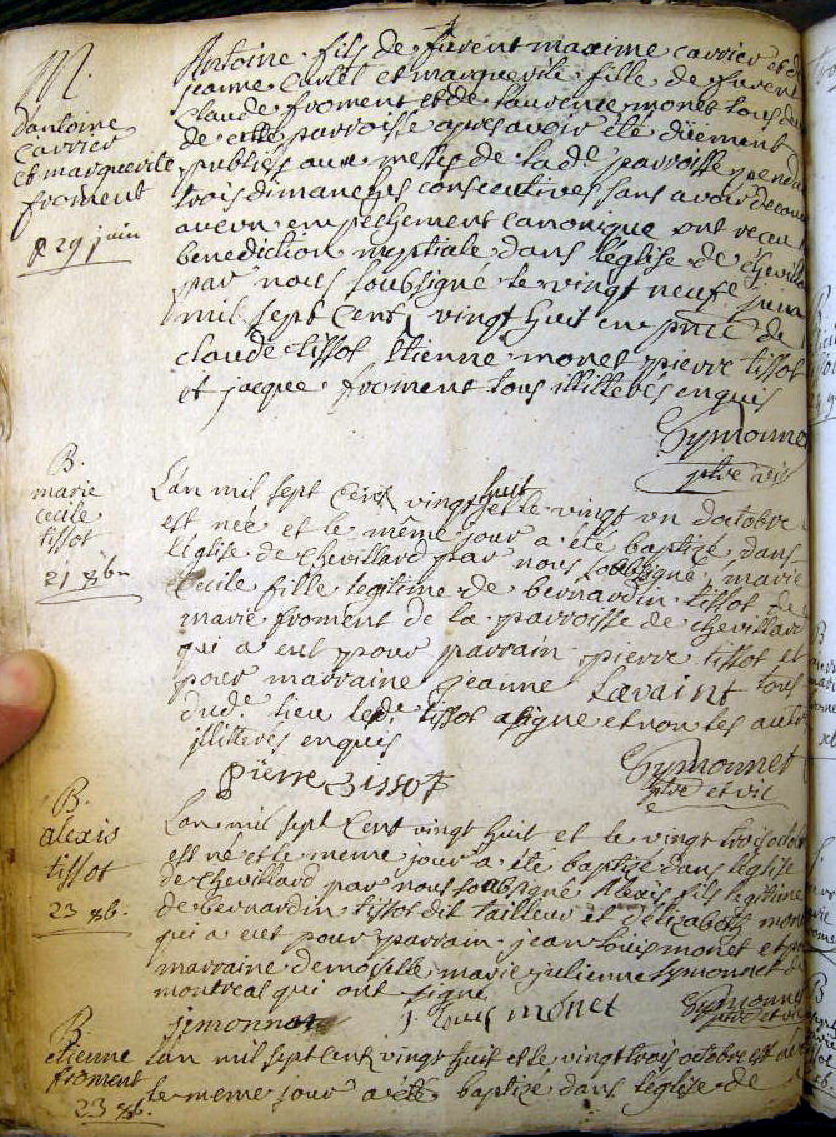 M.
d'antoine
Carrier
et marguerite
froment
le 29 juin
Antoine fils de furent maxime carrier et de
jeanne Curlet et marguerite fille de furent
Claude froment et de laurence monet tous deux
de cette parroisse apres avoir été düement
publiés aux messes de lade parroisse pendant
trois dimanches consecutives sans avoir decouvert
aucun empêchement canonique ont receu la
benediction nuptiale dans l'église de chevillard
par nous soubsigné le vingt neufe juin
mil sept cent vingt huit en pnce de
claude tissot Etienne monet pierre tissot
et jacque froment tous illitterés enquis
Symonnet
ptre vis
B.
marie
cecile
tissot
21 8bre
L'an mil sept Cent vingt huit et le vingt un d'octobre
est née et le même jour a été baptizé dans
l'église de Chevillard par nous soubsigné marie
Cecile fille legitime de bernardin tissot de
marie froment de la parroisse de chevillard
qui a eut pour parrain pierre tissot et
pour marraine jeanne Lavaint tous
dud. lieu led. tissot a signe et non les autre
jllitterés enquis
pierre Tissot
Symonnet
ptre et vic
B.
alexis
tissot
23 8b.
L'an mil sept Cent vingt huit et le vingt trois octobre
est né et le meme jour a été baptizé dans l'église
de Chevillard par nous soubsigné Alexis fils legitime
de bernardin tissot dit tailleur et d'elizabeth monet
qui a eut pour parrain jean louis monet et pour
marraine demoiselle marie julienne Symonnet de
montreal qui ont signe
jemonnet
j louis monet
Symonnet
ptre et vic
B.
etienne
froment
23 8b.
L'an mil sept Cent vingt huit et le vingt trois octobre est né
le meme jour a été baptizé dans l'église de